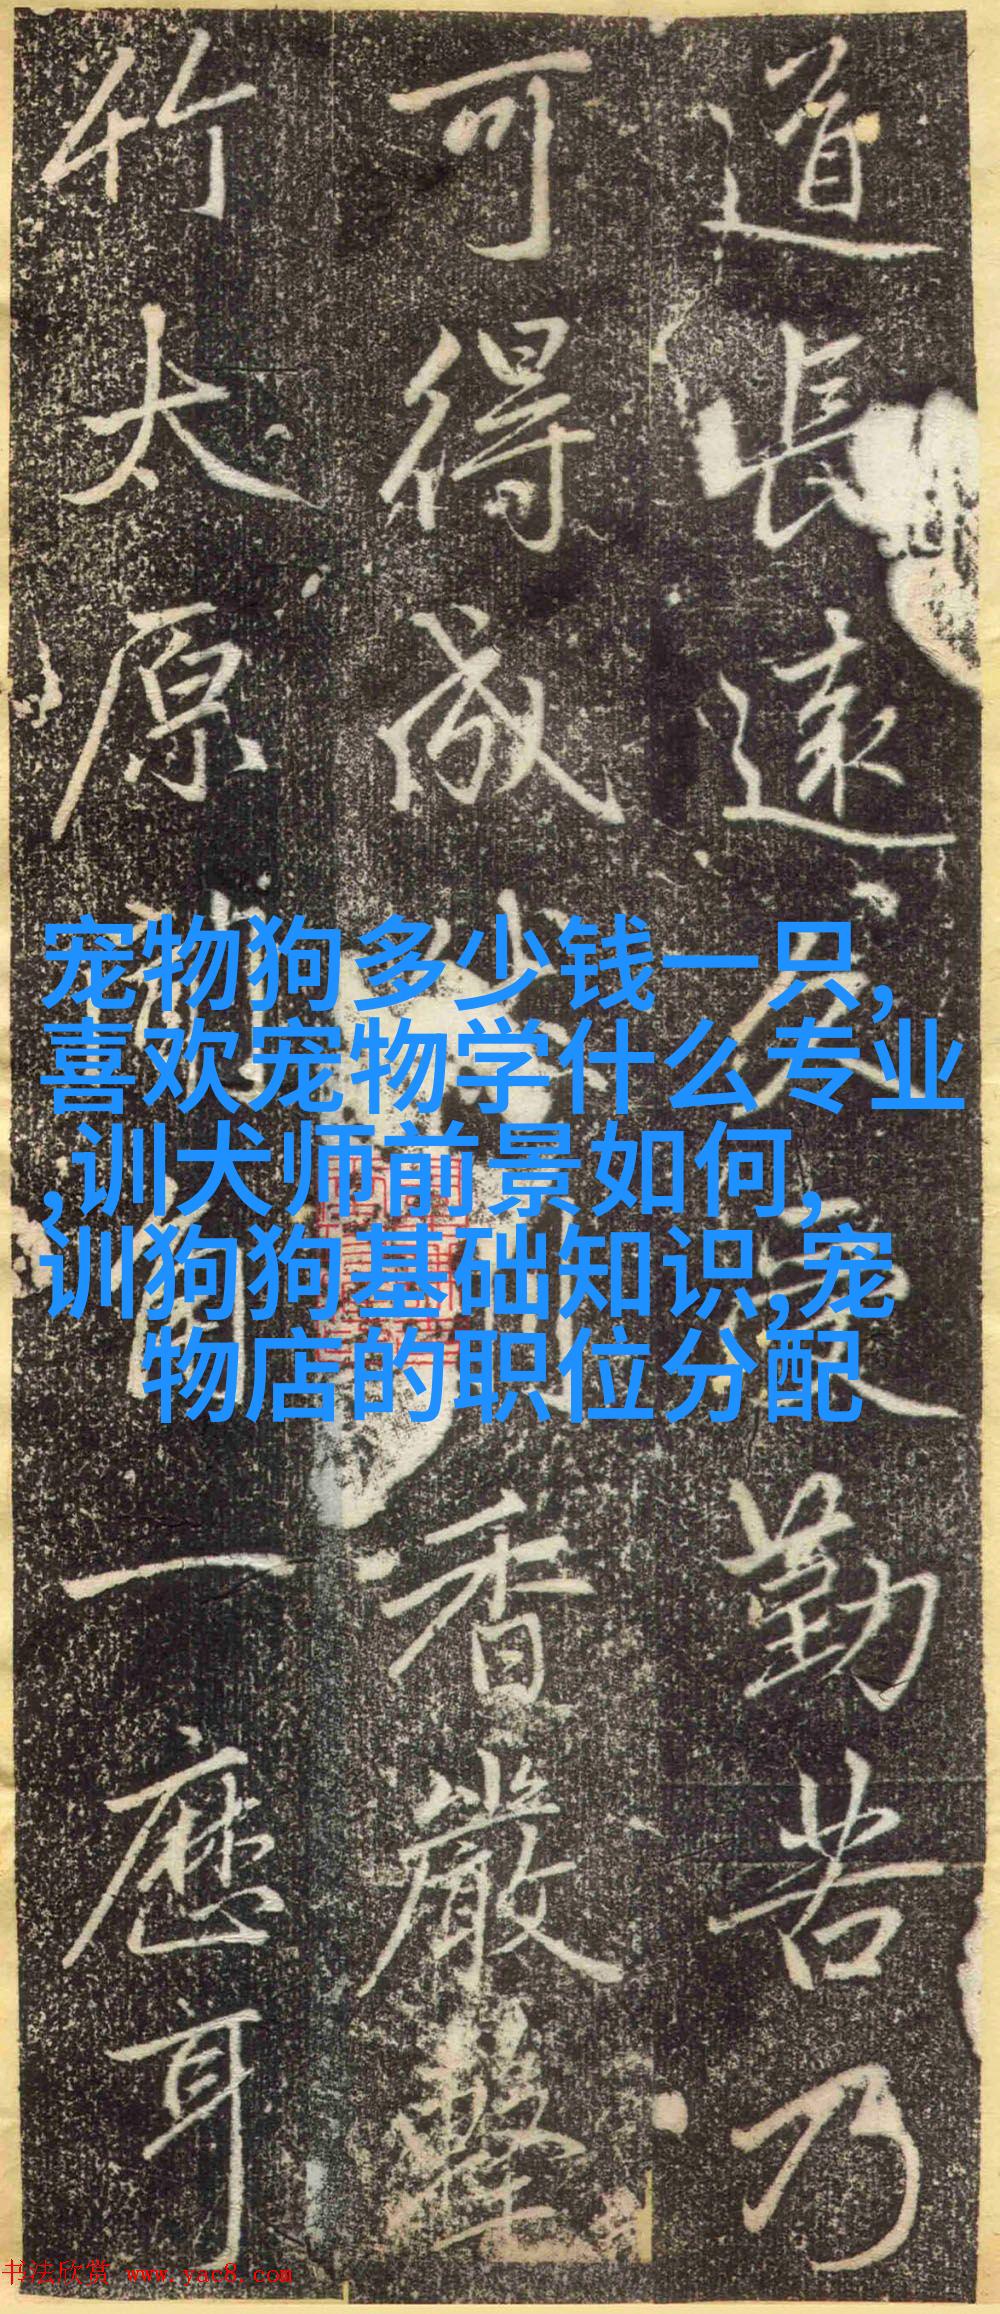 道長遠久受勤苦乃
可得成少香嚴擊
竹太原一應耳
宠物狗多少钱一只,
喜欢宠物学什么专业
,训犬师前景如何,
训狗狗基础知识,宠
物店的职位分配
书法欣赏 www.yac8.com